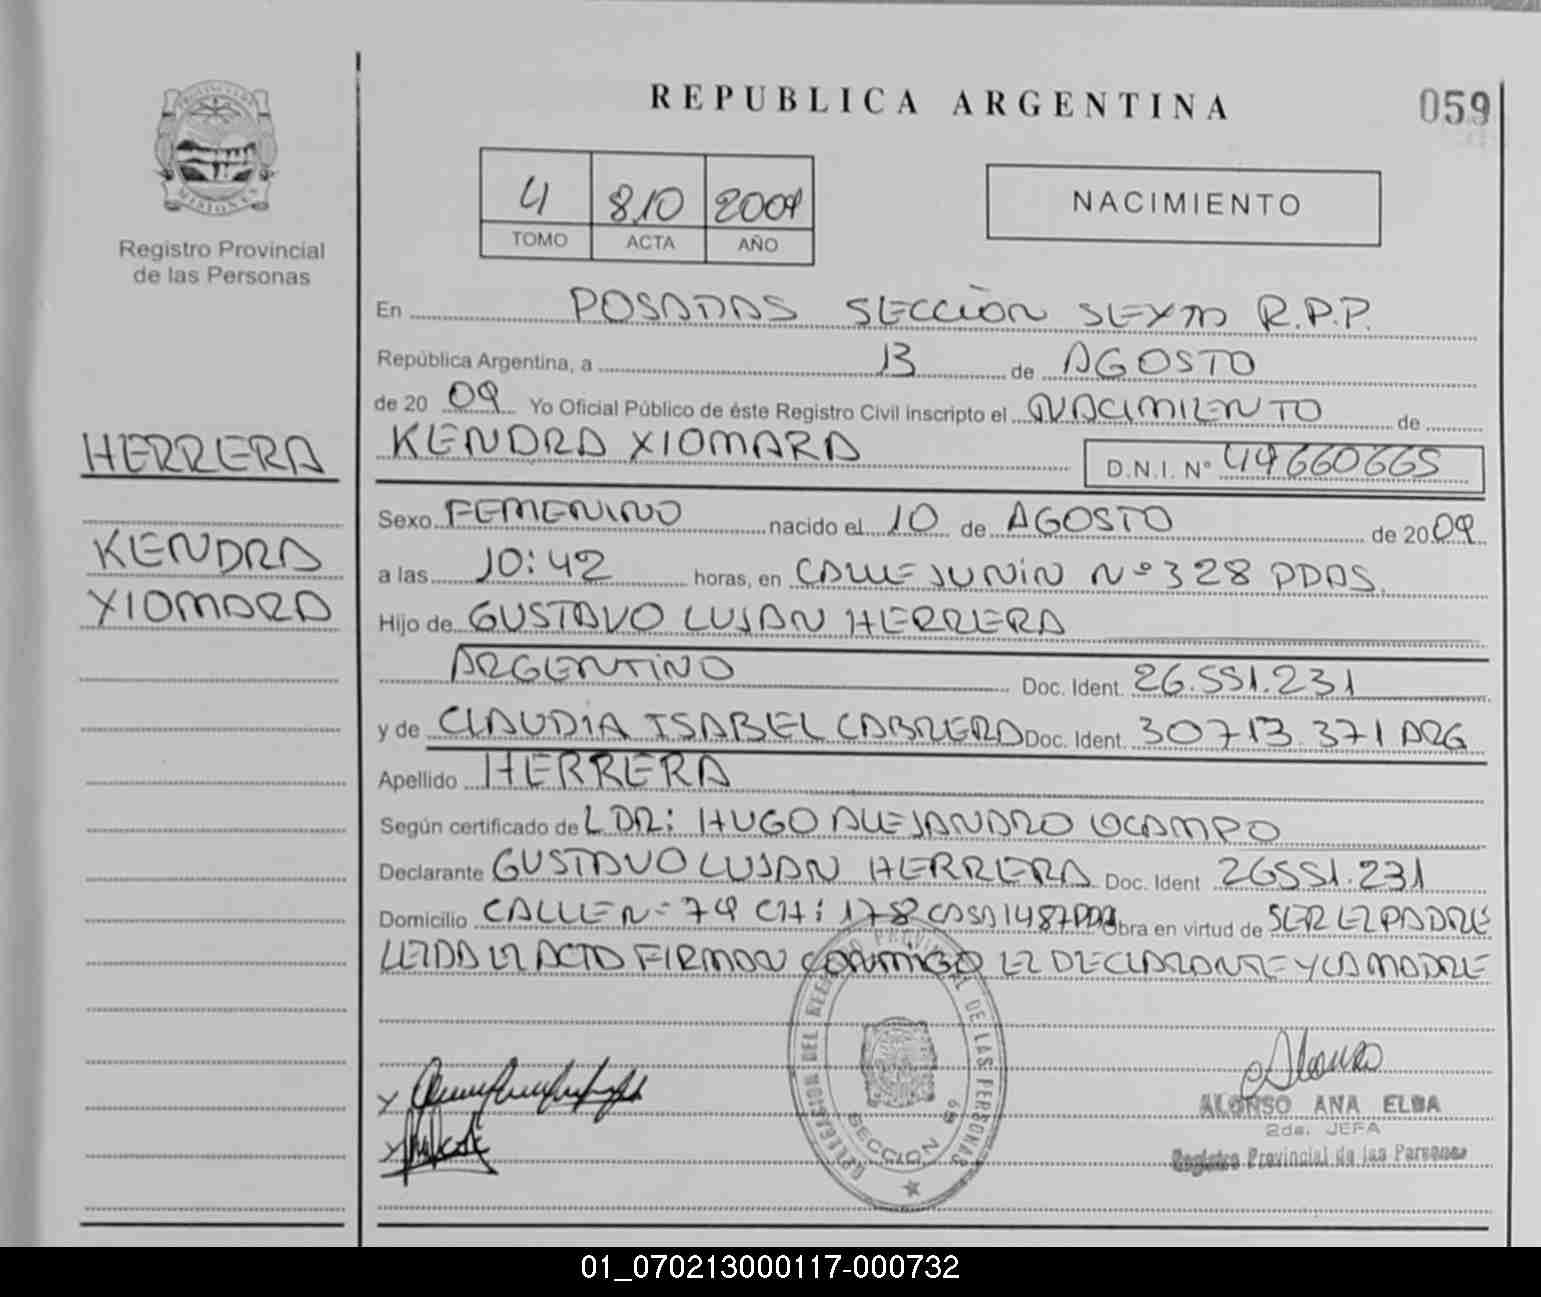 REPUBLICA ARGENTINA
059
PROVINCIA DE
MISIONES
Registro Provincial
de las Personas
4 810 2009
TOMO ACTA AÑO
NACIMIENTO
En POSADAS SECCIÓN SEXTA R.P.P.
República Argentina, a 13 de AGOSTO
de 2009 Yo Oficial Público de éste Registro Civil inscripto el NACIMIENTO de
HERRERA
KENDRA XIOMARA D.N.I. N° 49660665
Sexo FEMENINO nacido el 10 de AGOSTO de 2009
KENDRA
XIOMARA
a las 10:42 horas, en CALLE JUNIN Nº 328 PDAS.
Hijo de GUSTAVO LUJAN HERRERA
ARGENTINO Doc. Ident. 26.551.231
y de CLAUDIA ISABEL CABRERA Doc. Ident. 30713.371 ARG
Apellido HERRERA
Según certificado de L DR: HUGO ALEJANDRO OCAMPO
Declarante GUSTAVO LUJAN HERRERA Doc. Ident 26551.231
Domicilio CALLE N= 74 CH: 178 CASA 1487 PDA Obra en virtud de SER EL PADRE
LEIDA EL ACTA FIRMAN CONMIGO EL DECLARANTE Y LA MADRE
DELEGACION DEL REGISTRO PROVINCIAL DE LAS PERSONAS
SECCION 6ª
Alonso
ALONSO ANA ELBA
2da. JEFA
Registro Provincial de las Personas
01_070213000117-000732